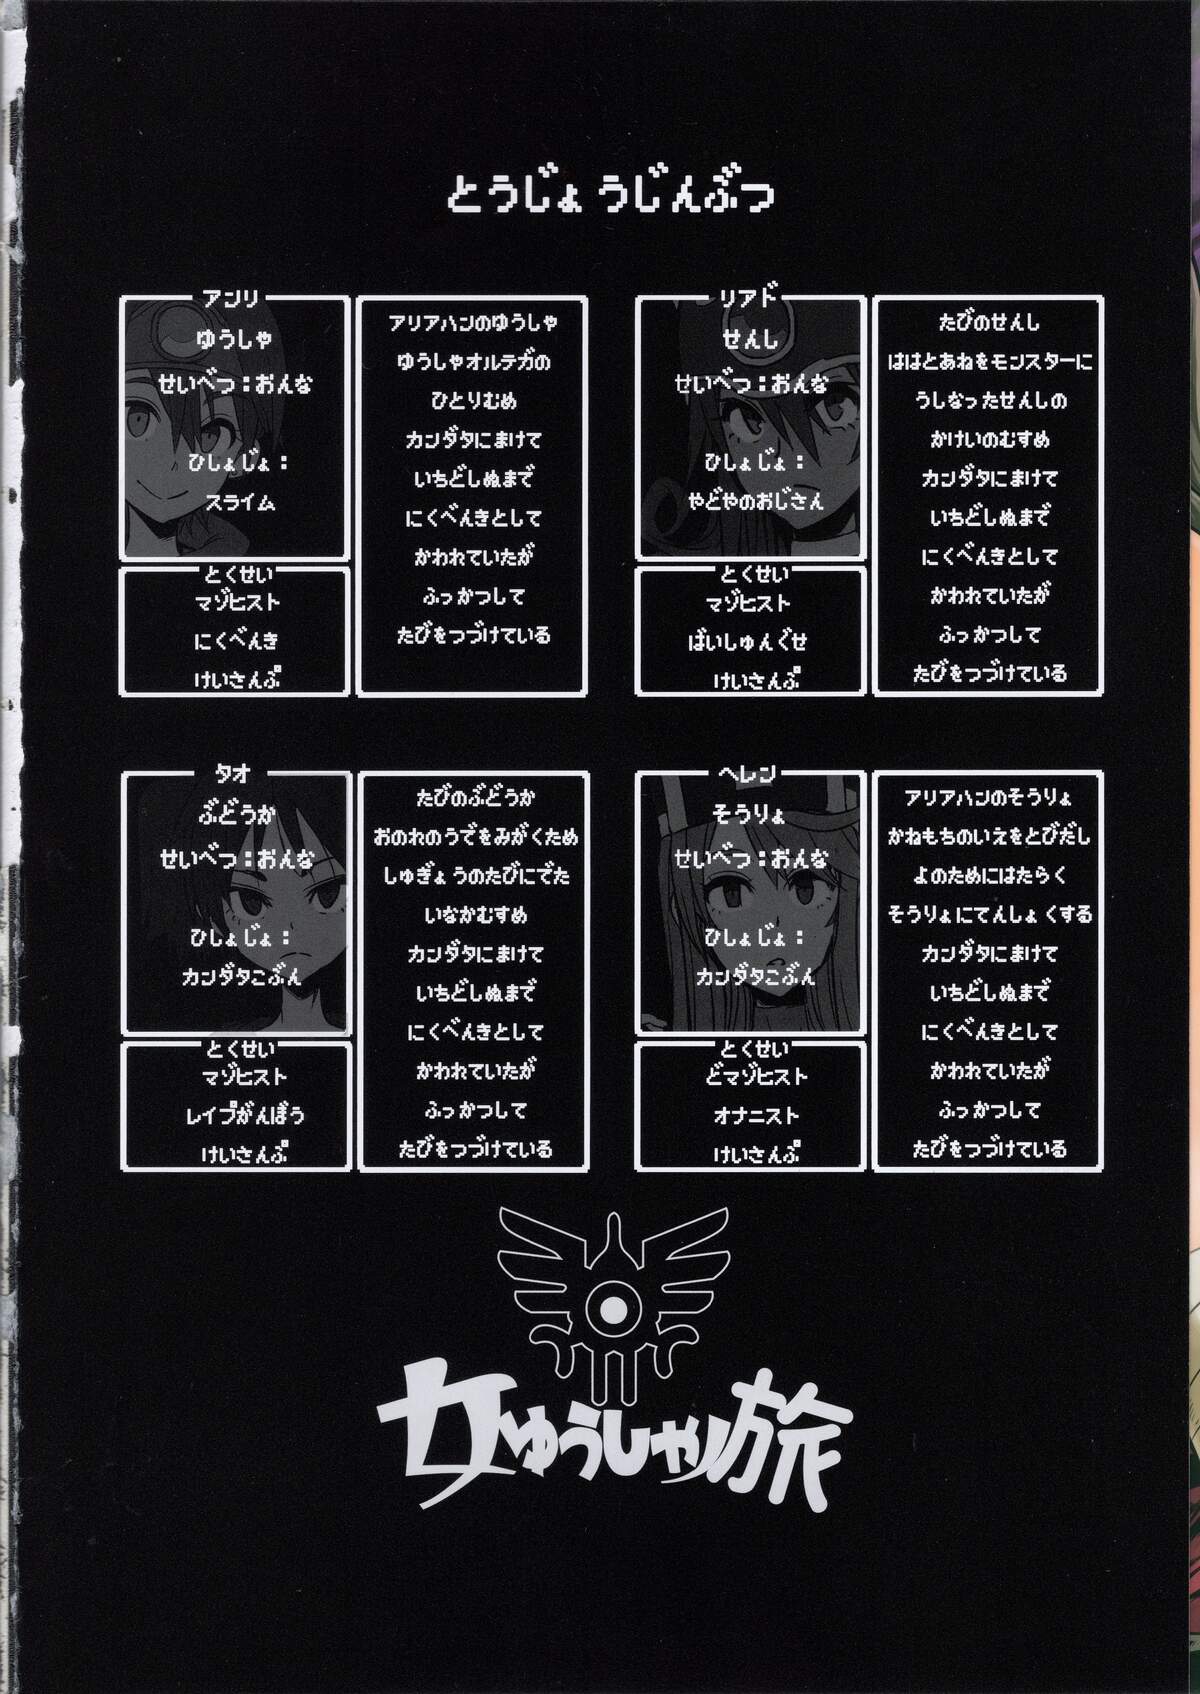 とうじょうじんぶつ
アンリ
ゆうしゃ
せいべつ：おんな
ひしょじょ：
スライム
とくせい
マゾヒスト
にくべんき
けいさんぷ
アリアハンのゆうしゃ
ゆうしゃオルテガの
ひとりむめ
カンダタにまけて
いちどしぬまで
にくべんきとして
かわれていたが
ふっかつして
たびをつづけている
リアド
せんし
せいべつ：おんな
ひしょじょ：
やどやのおじさん
とくせい
マゾヒスト
ばいしゅんぐせ
けいさんぷ
たびのせんし
ははとあねをモンスターに
うしなったせんしの
かけいのむすめ
カンダタにまけて
いちどしぬまで
にくべんきとして
かわれていたが
ふっかつして
たびをつづけている
タオ
ぶどうか
せいべつ：おんな
ひしょじょ：
カンダタこぶん
とくせい
マゾヒスト
レイプがんぼう
けいさんぷ
たびのぶどうか
おのれのうでをみがくため
しゅぎょうのたびにでた
いなかむすめ
カンダタにまけて
いちどしぬまで
にくべんきとして
かわれていたが
ふっかつして
たびをつづけている
ヘレン
そうりょ
せいべつ：おんな
ひしょじょ：
カンダタこぶん
とくせい
どマゾヒスト
オナニスト
けいさんぷ
アリアハンのそうりょ
かねもちのいえをとびだし
よのためにはたらく
そうりょにてんしょくする
カンダタにまけて
いちどしぬまで
にくべんきとして
かわれていたが
ふっかつして
たびをつづけている
女ゆうしゃノ旅